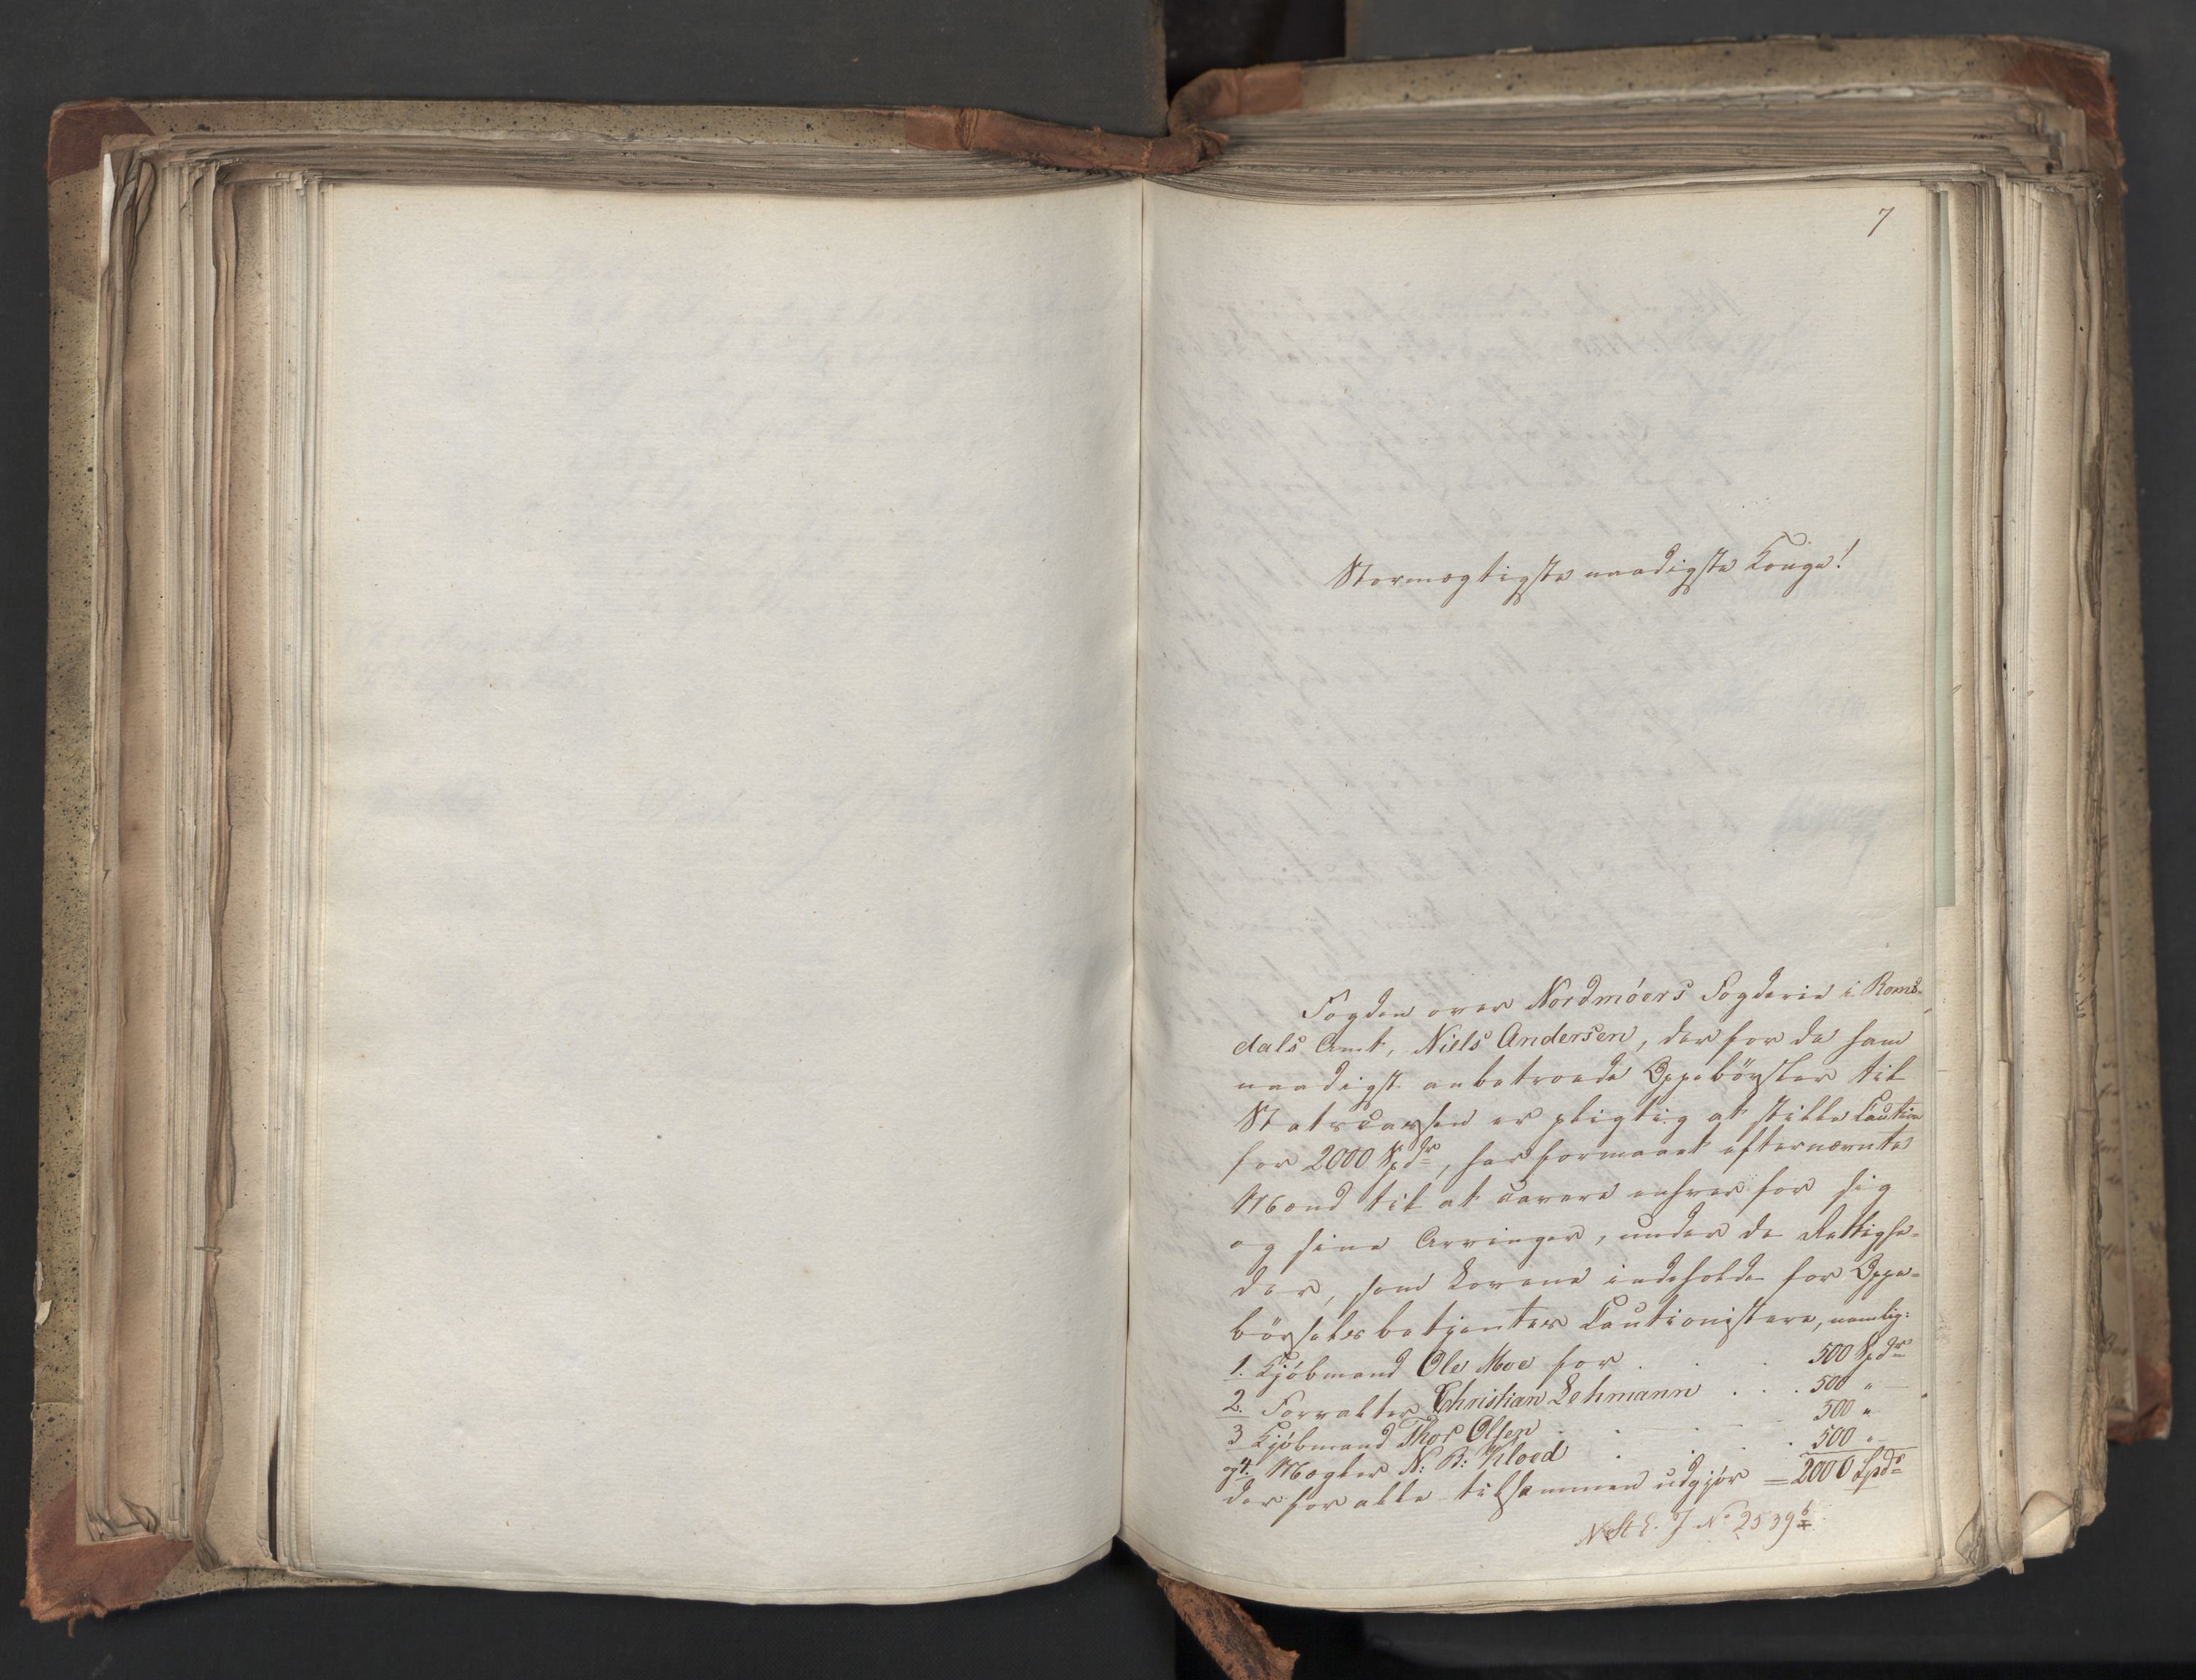 7
Stormægtigste naadigste Konge!
Fogden over Nordmöers Fogderie i Roms-
dals Amt, Niels Andersen, der for de ham
naadigst anbetroede Oppebörsler til
Statscassen er pligtig at stille Caution
for 2000 Spdr, har formaaet efternævnte
Mænd til at cavere enhver for sig
og sine Arvinger, under de Rettighe-
der, som Lovene indeholde for Oppe-
börselsbetjentes Cautionistere, nemlig:
1. Kjöbmand Ole Moe for . . . 500 Spdr
2. Forvalter Christian Lehmann . . . 500 "
3 Kjöbmand Thor Olsen . . . 500 "
og 4. Mægler N: B: Kloed . . . 500 "
der for alle tilsammen udgjör = 2000 Spdr
N St E. J No 2539 b